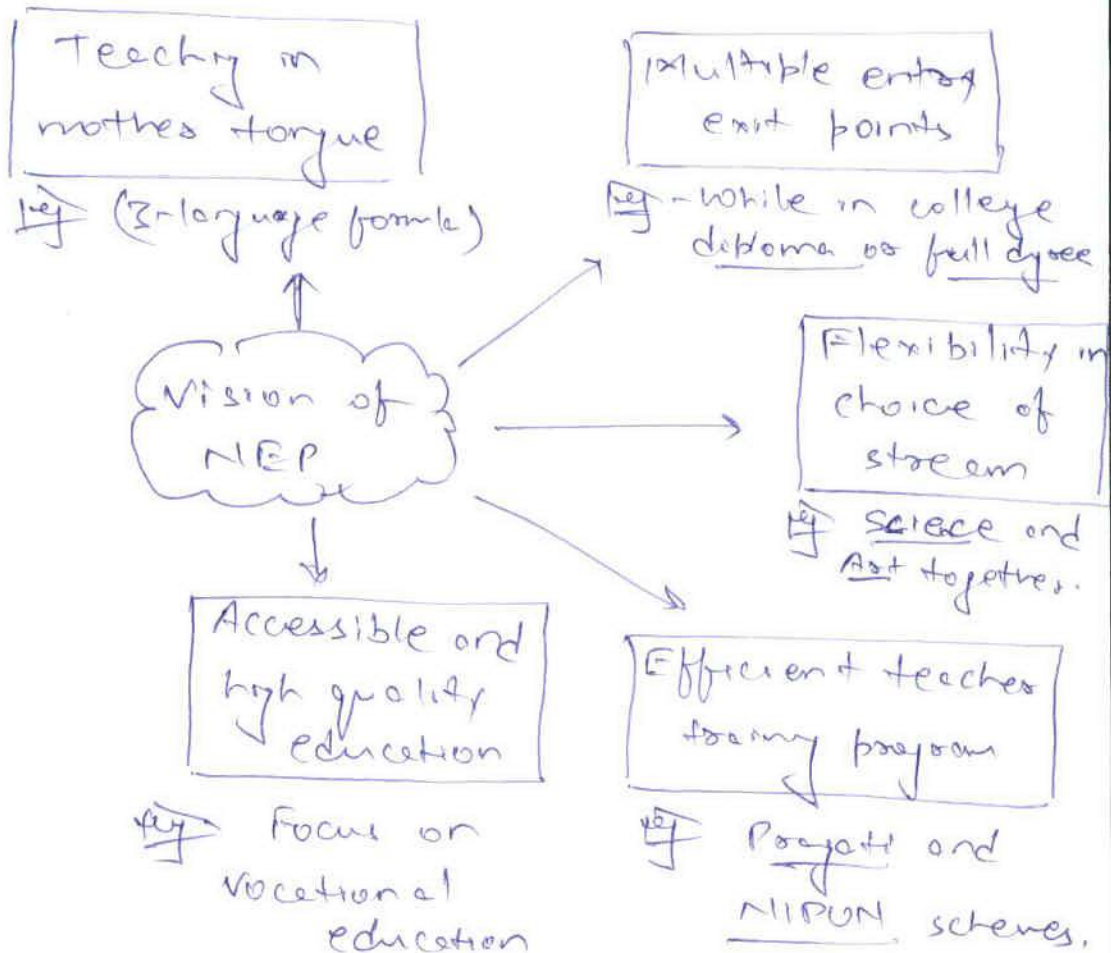 Teaching in
mother tongue
eg (3-language formula)
Multiple entry
exit points
eg - While in college
diploma or full degree
Vision of
NEP
Flexibility in
choice of
stream
eg Science and
Art together.
Accessible and
high quality
education
eg Focus on
vocational
education
Efficient teacher
training program
eg Pragati and
NIPUN schemes.